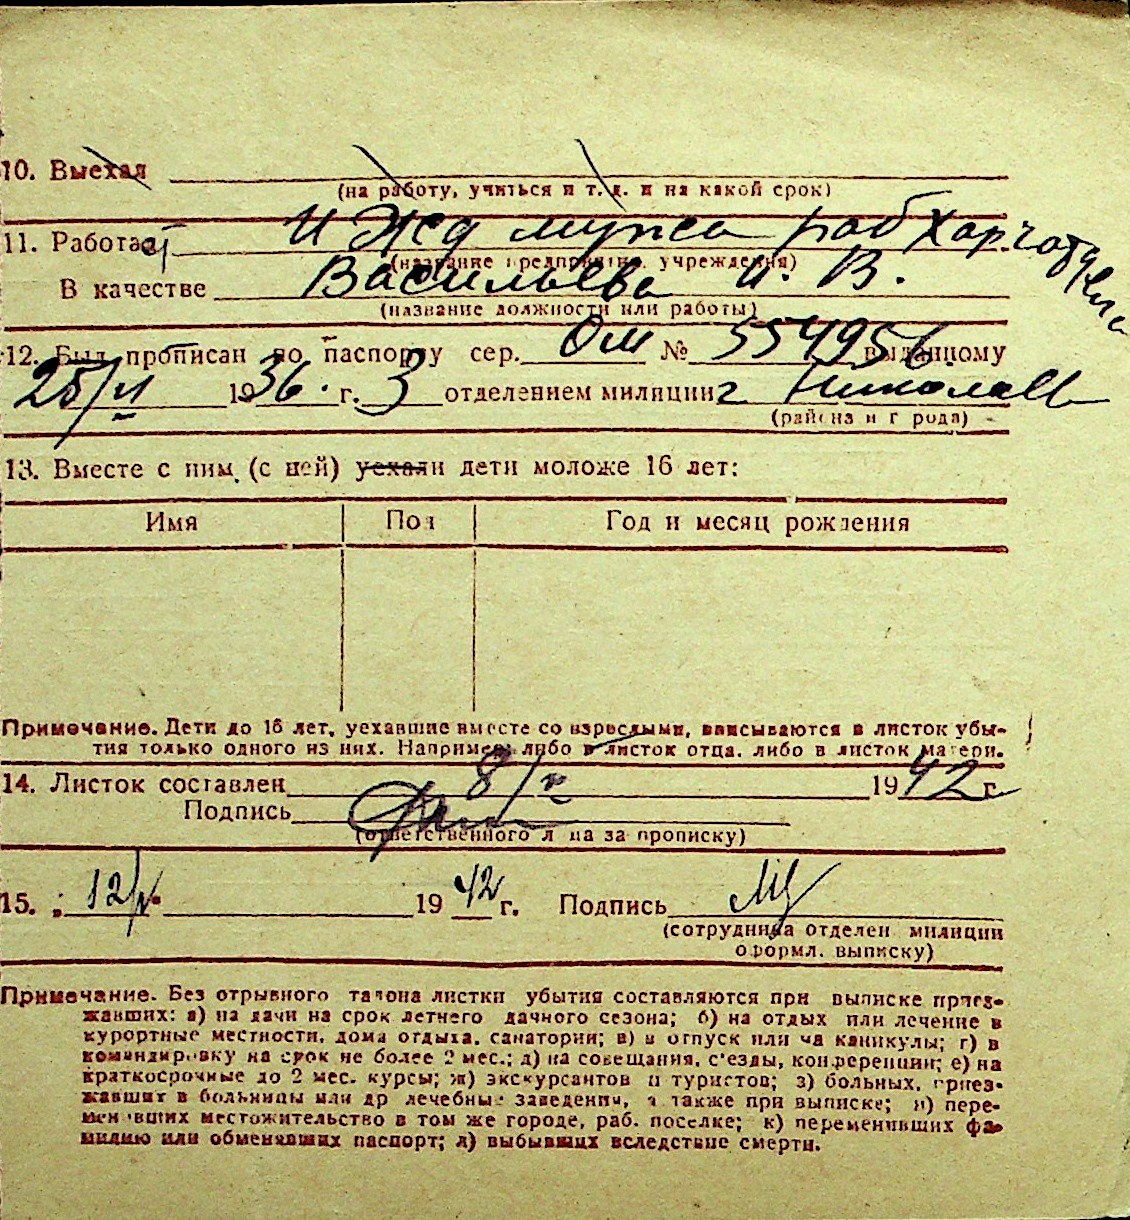 10. Выехал
(на работу, учиться и т. д. и на какой срок)
11. Работает И Жд мужа раб Харчо
(название предприятия, учреждения)
В качестве Васильева И. В.
(название должности или работы)
12. Был прописан по паспорту сер. ОМ № 554956. выданному
25/II 1936. г. 3 отделением милиции г Николаев
(района и города)
13. Вместе с ним (с ней) уехали дети моложе 16 лет:
Имя Пол Год и месяц рождения
Примечание. Дети до 16 лет, уехавшие вместе со взрослыми, вписываются в листок убы-
тия только одного из них. Например либо в листок отца, либо в листок матери.
14. Листок составлен 8/ 1942 г.
Подпись
(ответственного лица за прописку)
15. 12/ 1942 г. Подпись
(сотрудника отделен. милиции
оформл. выписку)
Примечание. Без отрывного талона листки убытия составляются при выписке приез-
жавших: а) на дачи на срок летнего дачного сезона; б) на отдых или лечение в
курортные местности, дома отдыха, санатории; в) в отпуск или на каникулы; г) в
командировку на срок не более 2 мес.; д) на совещания, с'езды, конференции; е) на
краткосрочные до 2 мес. курсы; ж) экскурсантов и туристов; з) больных, приез-
жавших в больницы или др лечебные заведения, а также при выписке; и) пере-
менивших местожительство в том же городе, раб. поселке; к) переменивших фа-
милию или обменявших паспорт; л) выбывших вследствие смерти.